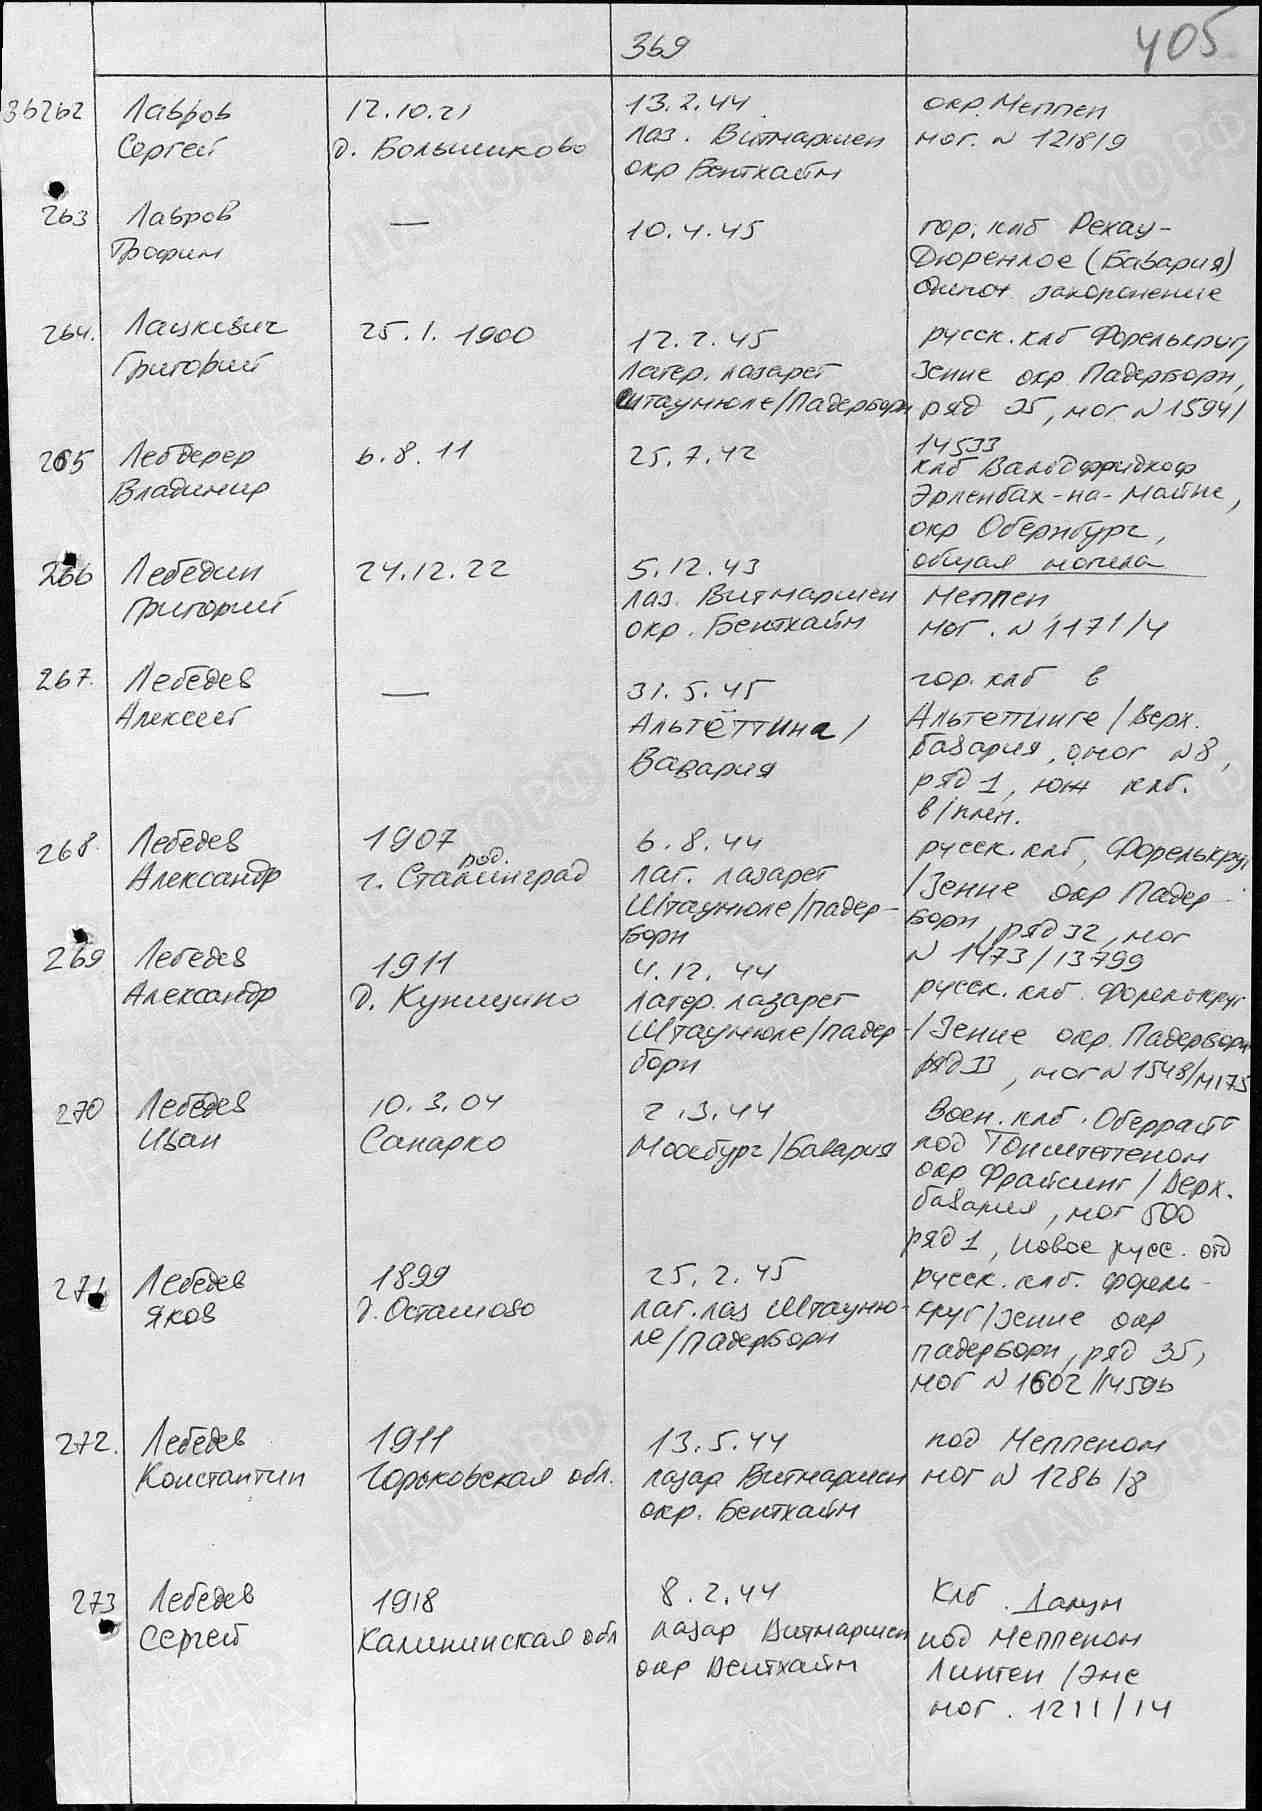 369
405
36262 Лавров 12.10.21 13.2.44 окр. Меппен
Сергей д. Большиково лаз. Витмаршен мог. N 1218/9
окр Бентхайм
263 Лавров — 10.4.45 гор. клб Рехау-
Трофим Дюренлое (Бавария)
один захоронение
264. Лашкевич 25.1.1900 12.2.45 русск. клб Форелькруг/
Григорий Лагер. лазарет Зенне окр Падерборн,
Штаумюле/Падерборн ряд 35, мог N 1594/
14533
265 Лебдерер 6.8.11 25.7.42 клб Вальдфридхоф
Владимир Эрленбах-на-Майне,
окр Обернбург,
общая могила
266 Лебедин 24.12.22 5.12.43 Меппен
Григорий лаз. Витмаршен мог. N 1171/4
окр. Бентхайм
267. Лебедев — 31.5.45 гор. клб в
Алексей Альтёттинг/ Альтеттинге/Верх.
Бавария Бавария, мог N 8,
ряд 1, юж клб.
в/плен.
268. Лебедев 1907 6.8.44 русск. клб, Форелькруг
Александр род. г. Сталинград лаг. лазарет /Зенне окр Падер-
Штаумюле/Падер- борн, ряд 32, мог
борн N 1473/13799
269 Лебедев 1911 4.12.44 русск. клб. Форелькруг
Александр д. Куницино лагер. лазарет /Зенне окр. Падерборн
Штаумюле/Падер- ряд 33, мог N 1548/14175
борн
270 Лебедев 10.3.04 2.3.44 Воен. клб. Оберрайт
Иван Санарко Моосбург/Бавария под Тонштеттеном
окр Фрайсинг/Верх.
Бавария, мог 500
ряд 1, новое русс. отд
271 Лебедев 1899 25.2.45 русск. клб. Форель-
Яков д. Осташово лаг. лаз Штаумю- круг/Зенне окр
ле/Падерборн Падерборн, ряд 35,
мог N 1602/14596
272. Лебедев 1911 13.5.44 под Меппеном
Константин Горьковская обл. лазар Витмаршен мог N 1286/8
окр. Бентхайм
273 Лебедев 1918 8.2.44 Клб. Далум
Сергей Калининская обл лазар Витмаршен под Меппеном
окр Бентхайм Линген/Эмс
мог. 1211/14